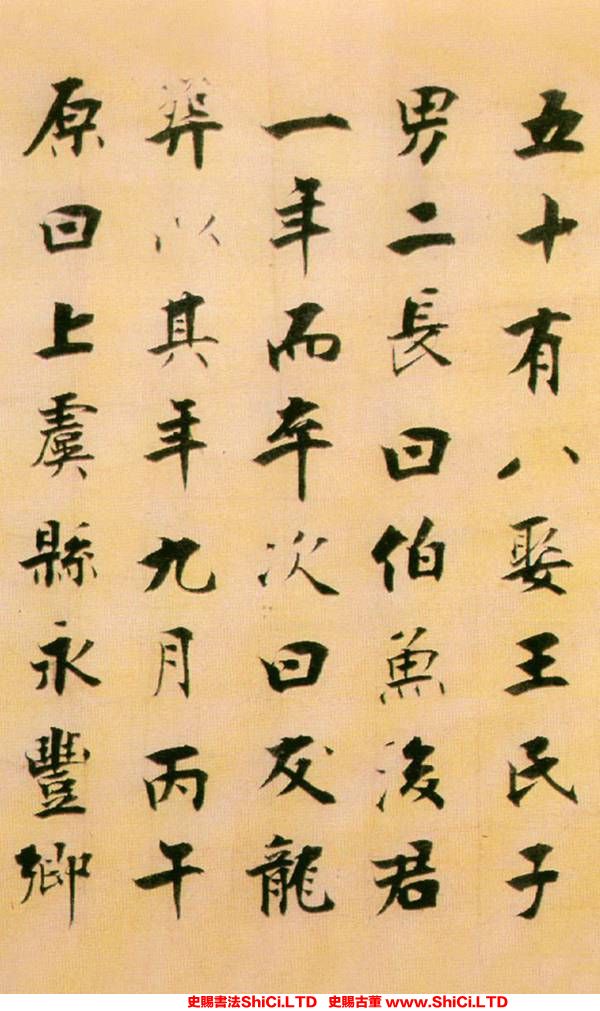 五十有八娶王民子
男二長曰伯魚後君
一年而卒次曰友龍
葬以其年九月丙午
原曰上虞縣永豐鄉
史賜書法ShiCi.LTD 史賜古董 www.ShiCi.LTD